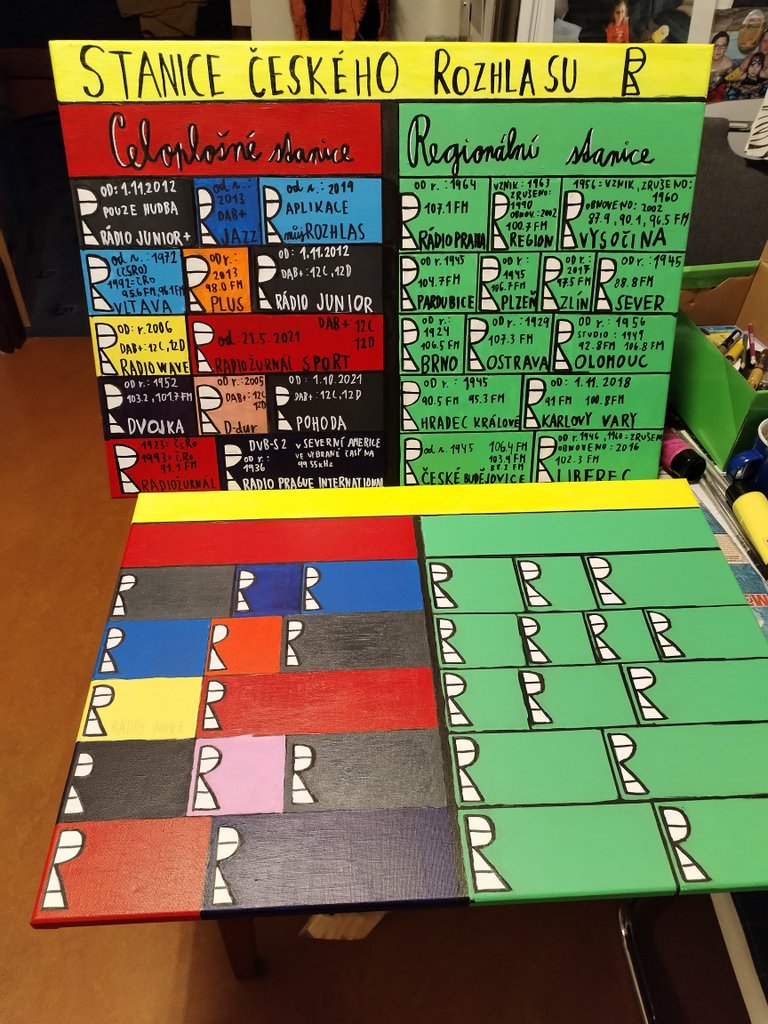 STANICE ČESKÉHO ROZHLASU R
Celoplošné stanice
OD: 1.11.2012
POUZE HUDBA
RÁDIO JUNIOR+
od r.:
2013
DAB+
JAZZ
od r.: 2019
APLIKACE
můjROZHLAS
od r.: 1972
(ČSRO)
1992=ČRO
95.6FM, 96.1FM
VLTAVA
OD r.:
2013
98.0 FM
PLUS
OD: 1.11.2012
DAB+: 12C, 12D
RÁDIO JUNIOR
OD: r.2006
DAB+: 12C, 12D
RADIO WAVE
DAB+: 12C
od 21.5 2021 12D
RADIOŽURNÁL SPORT
OD r.: 1952
103.2, 101.7 FM
DVOJKA
OD r.:2005
DAB+: 12C
12D
D-dur
OD: 1.10.2021
DAB+: 12C, 12D
POHODA
1923= ČsRo
1993=ČRo
91.1 FM
RADIOŽURNÁL
DVB-S2 V SEVERNÍ AMERICE
OD r.: VE VYBRANÉ ČASY NA
1936 9955kHz
RADIO PRAGUE INTERNATIONAL
Regionální stanice
OD r.: 1964
107.1 FM
RÁDIO PRAHA
VZNIK: 1963
ZRUŠENO:
1990
OBNOV.: 2002
100.7 FM
REGION
1956=VZNIK, ZRUŠENO:
1960
OBNOVENO: 2002
87.9, 90.1, 96.5 FM
VYSOČINA
OD r.: 1945
104.7 FM
PARDUBICE
OD r.:
1945
106.7 FM
PLZEŇ
OD r.:
2017
97.5 FM
ZLÍN
OD r.: 1945
88.8 FM
SEVER
OD r.:
1924
106.5 FM
BRNO
OD r.: 1929
107.3 FM
OSTRAVA
OD r.: 1956
STUDIO: 1949
92.8 FM 106.8 FM
OLOMOUC
OD r.: 1945
90.5 FM 95.3 FM
HRADEC KRÁLOVÉ
OD: 1.11.2018
91 FM 100.8 FM
KARLOVY VARY
od r.: 1945 106.4 FM
103.9 FM
88.2 FM
ČESKÉ BUDĚJOVICE
OD r.: 1946, 1960=ZRUŠENO
OBNOVENO: 2016
102.3 FM
LIBEREC
RADIO WAVE